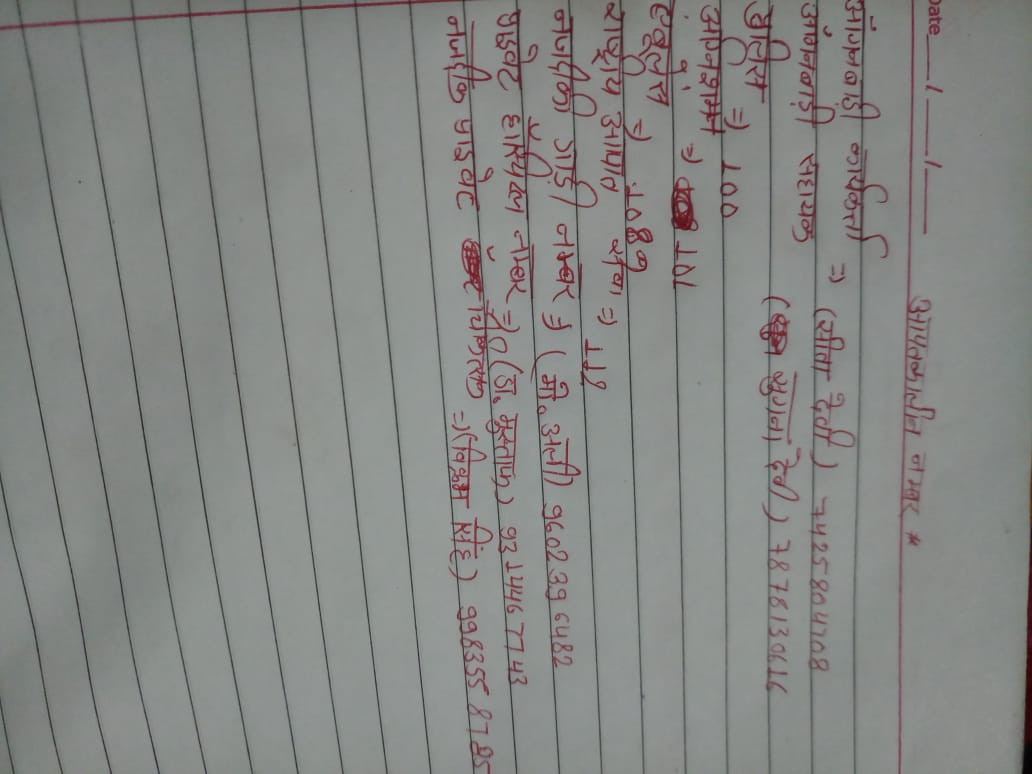 Date ___/___/___
आपातकालीन नम्बर *
आंगनबाड़ी कार्यकर्ता ⇒ (सीता देवी) 7425804708
आंगनबाड़ी सहायक (सुगना देवी) 7878130616
पुलिस ⇒ 100
अग्निशमन ⇒ 101
एम्बुलेंस ⇒ 108
राष्ट्रीय आपात सेवा ⇒ 112
नजदीकी गाडी नम्बर ⇒ (मो. अली) 9602396482
प्राइवेट हॉस्पिटल नम्बर ⇒ (डॉ. मुस्ताफ) 9314467743
नजदीक प्राइवेट ⇒ (विक्रम सिंह) 9983558785